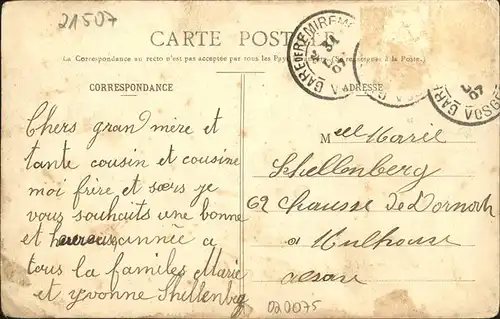 21507
CARTE POSTALE
La Correspondance au recto n'est pas acceptée par tous les Pays
à la Poste
CORRESPONDANCE
ADRESSE
GARE DE REMIREMONT
31
07
GARE
07
VOSGES
Chers grand mère et
tante cousin et cousine
moi frère et sœrs je
vous souhaits une bonne
et heureuse année a
tous la familes Marie
et yvonne Shellenberg
Mell Marie
Schellenberg
62 Chausse De Dornach
a Mulhouse
alsace
020075